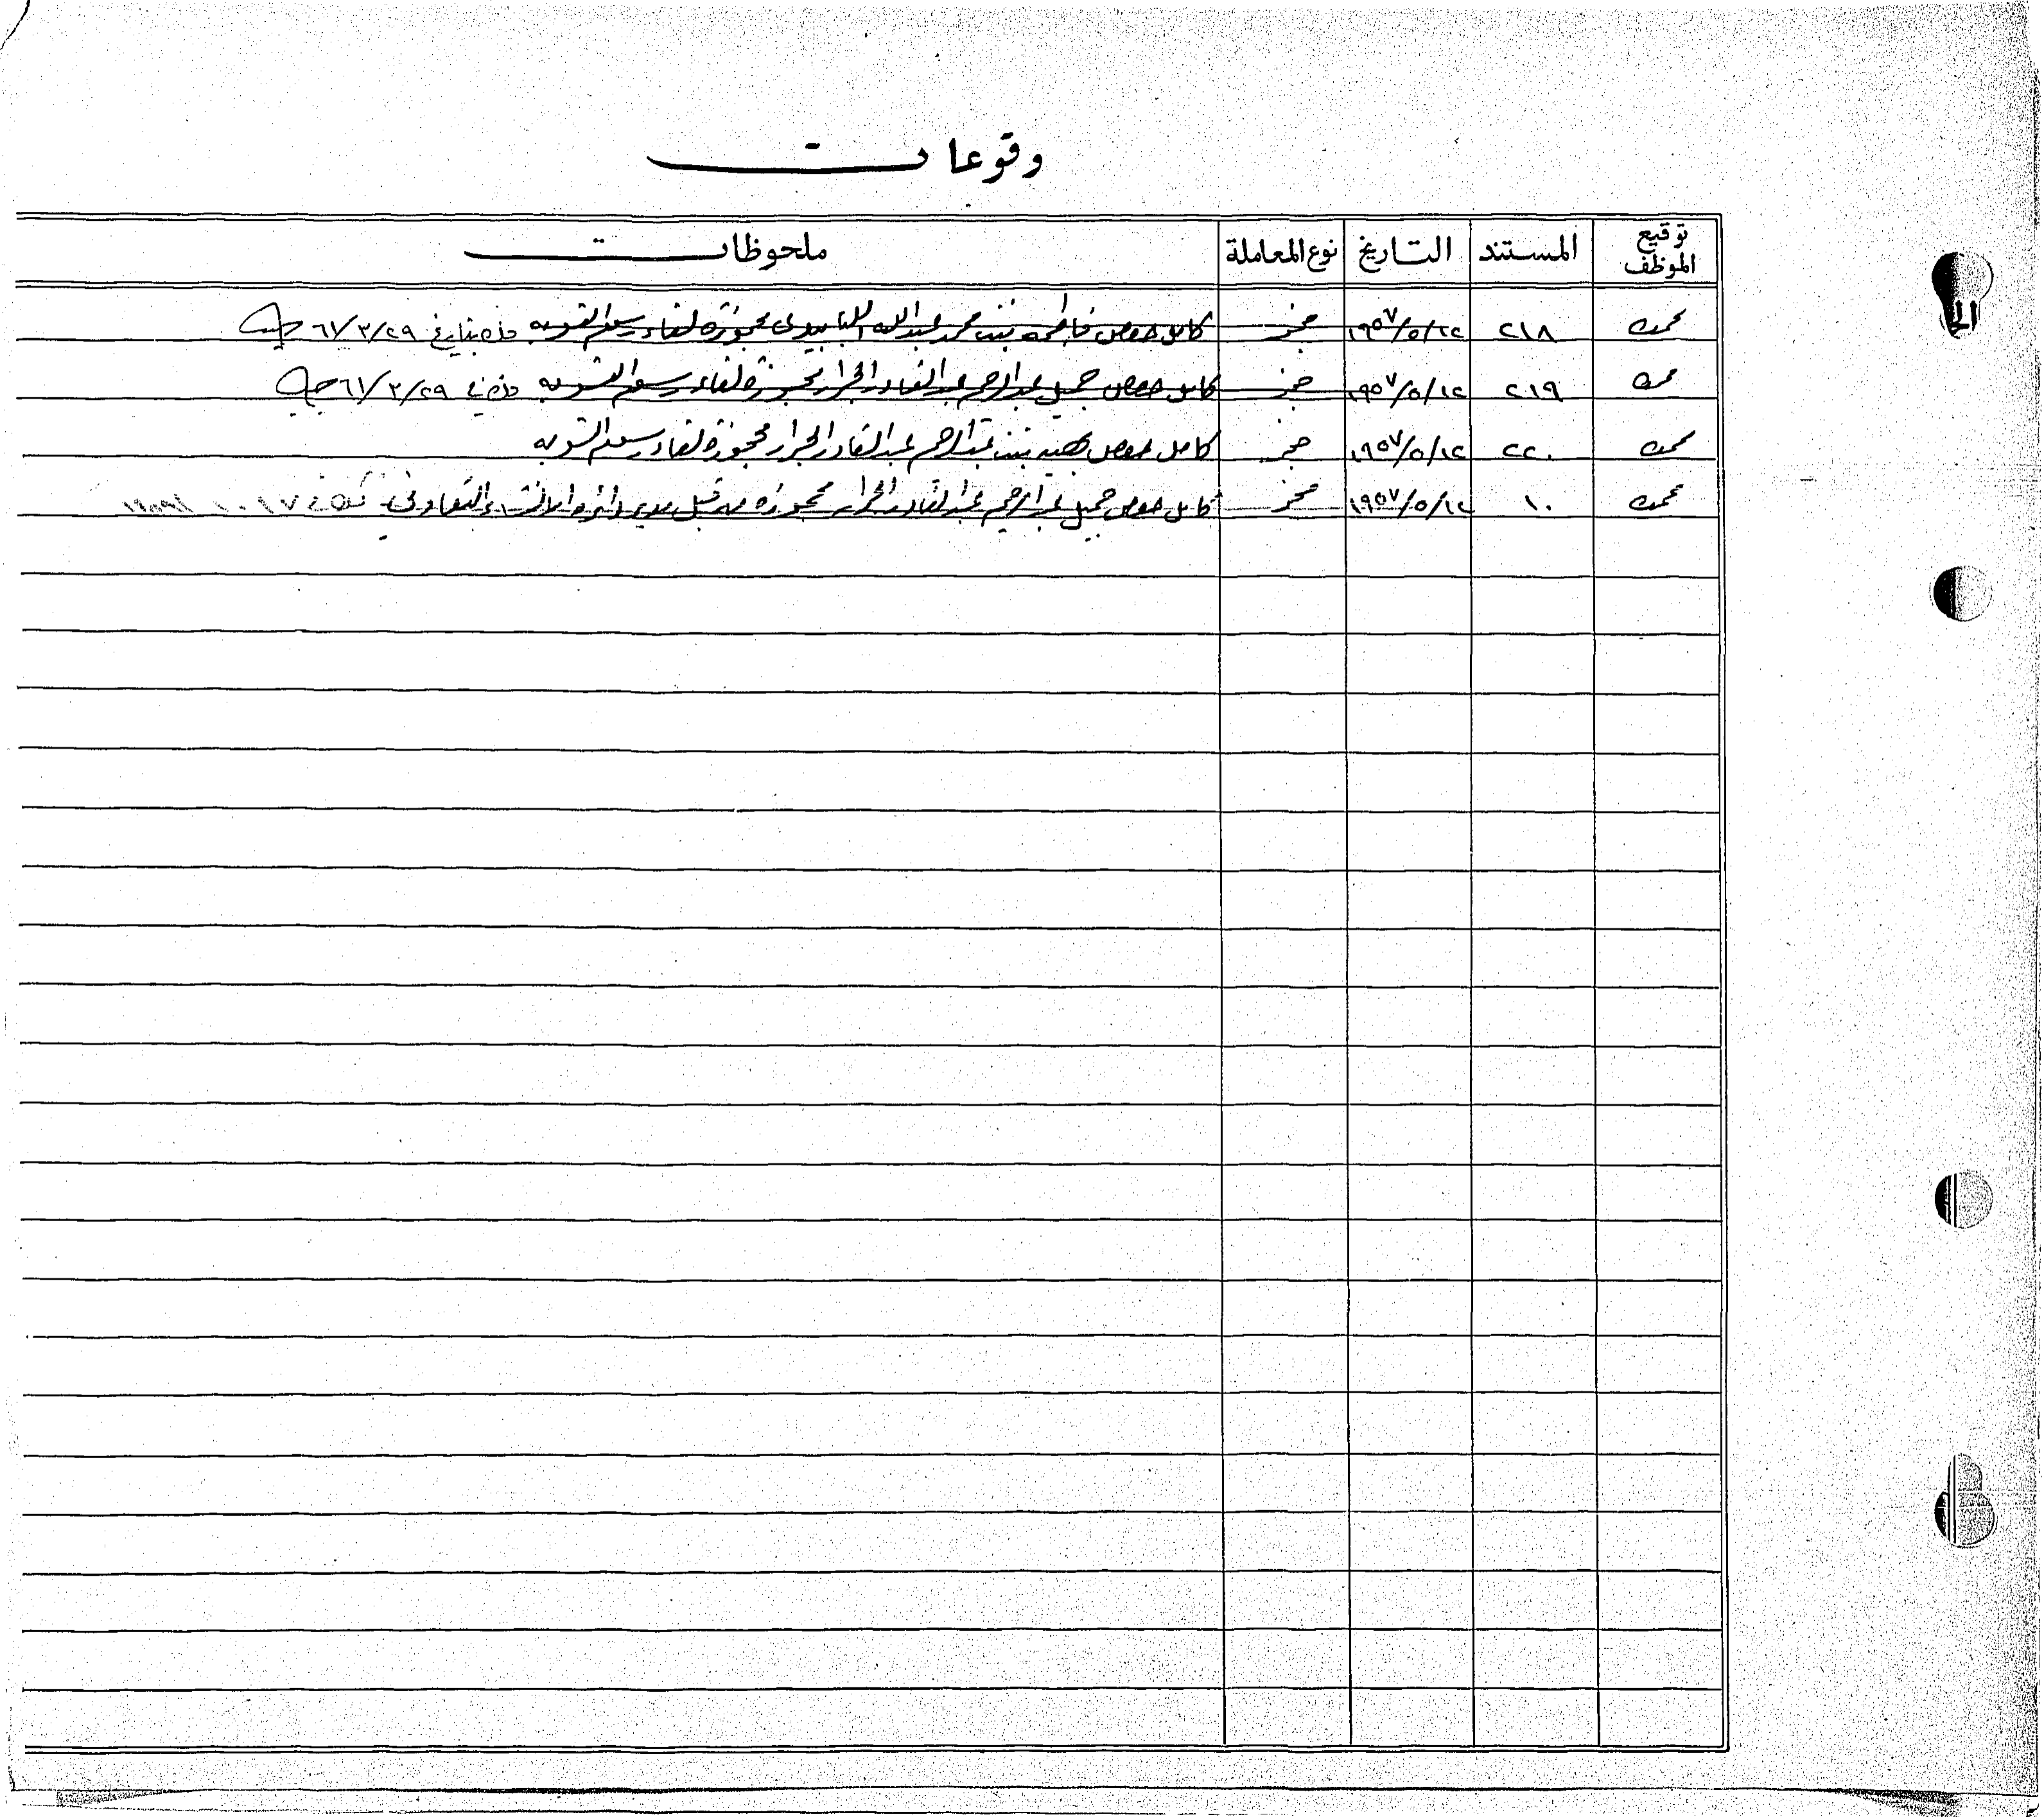 وقوعات
توقيع الموظف المستند التاريخ نوع المعاملة ملحوظات
محمد ٢١٨ ١٩٥٧/٥/١٢ حجز كامل حصص فاطمه بنت محمد عبد الله اللبابيدي محجوزة لقاء رسم التسويه بتاريخ ٦١/٣/٢٩
محمد ٢١٩ ١٩٥٧/٥/١٢ حجز كامل حصص جميل عبد الرحيم عبد القادر الجرار محجوزة لقاء رسم التسويه في ٦١/٣/٢٩
محمد ٢٢٠ ١٩٥٧/٥/١٢ حجز كامل حصص بنت عبد الرحيم عبد القادر الجرار محجوزة لقاء رسم التسويه
محمد ١٠ ١٩٥٧/٥/١٢ حجز كامل حصص جميل عبد الرحيم عبد القادر الجرار محجوزه من قبل مدير دائرة الانشاء التعاوني